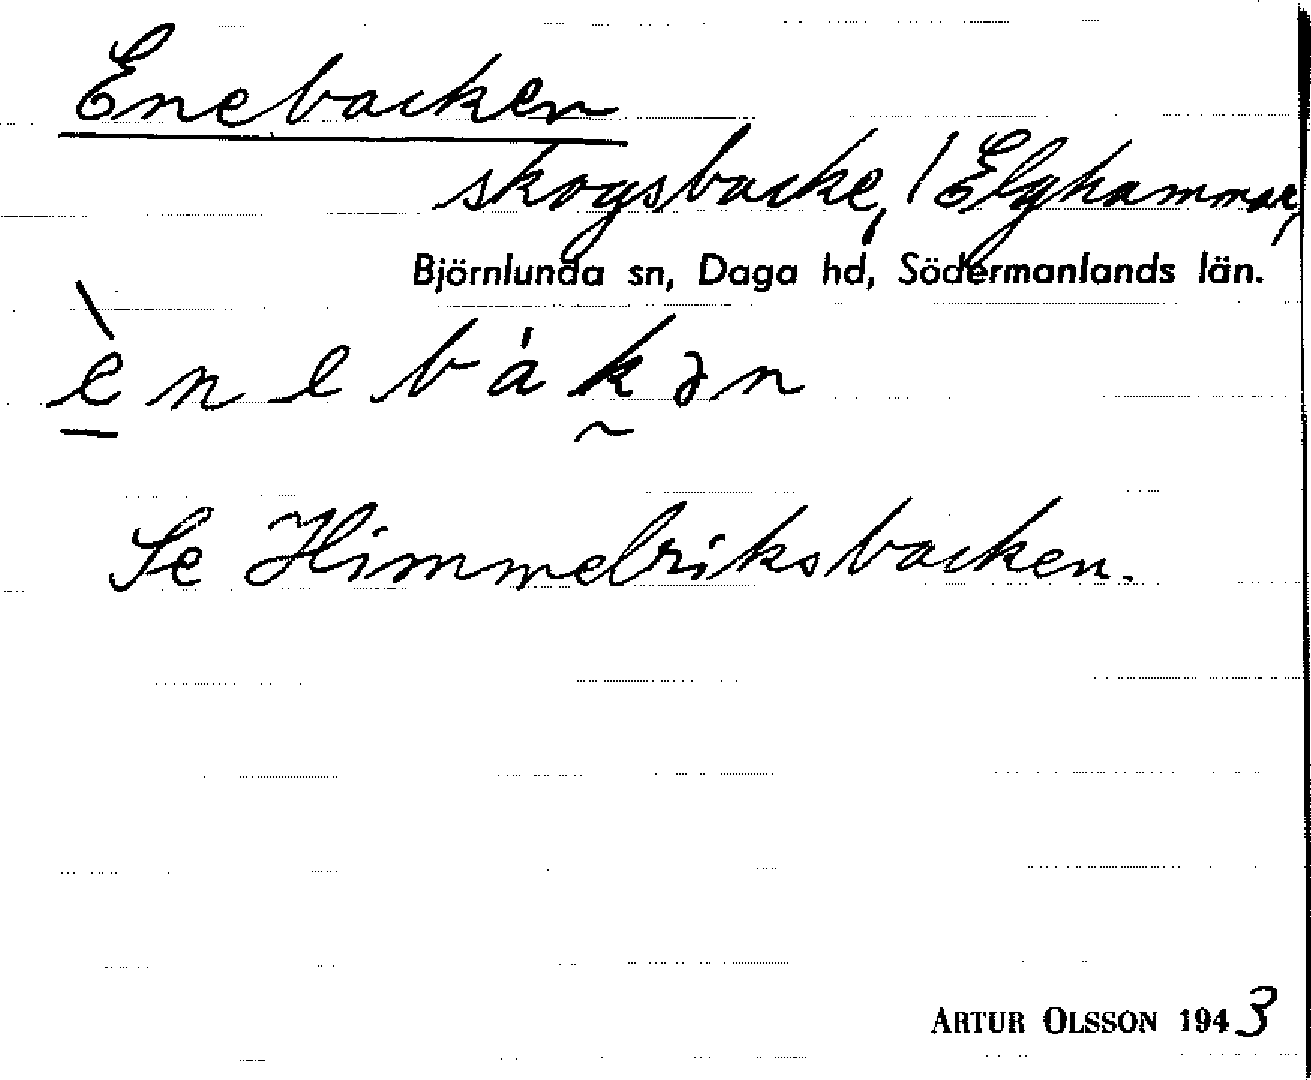 Enebacken
skogsbacke, / Elghammar,
Björnlunda sn, Daga hd, Södermanlands län.
è̱nebák̰ən
Se Himmelriksbacken.
ARTUR OLSSON 1943